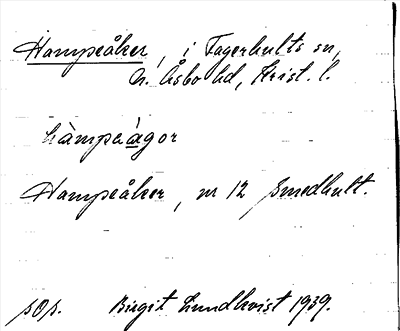 Hampeåker, i Fagerhults sn,
N. Åsbo hd, Krist. l.
hàmpeàgor
Hampeåker, nr 12 Smedhult.
sOp. Birgit Lundkvist 1939.